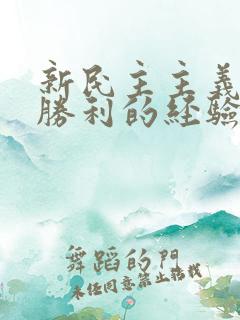 新民主主義
勝利的經驗
舞蹈的門
未任同意禁止轉載